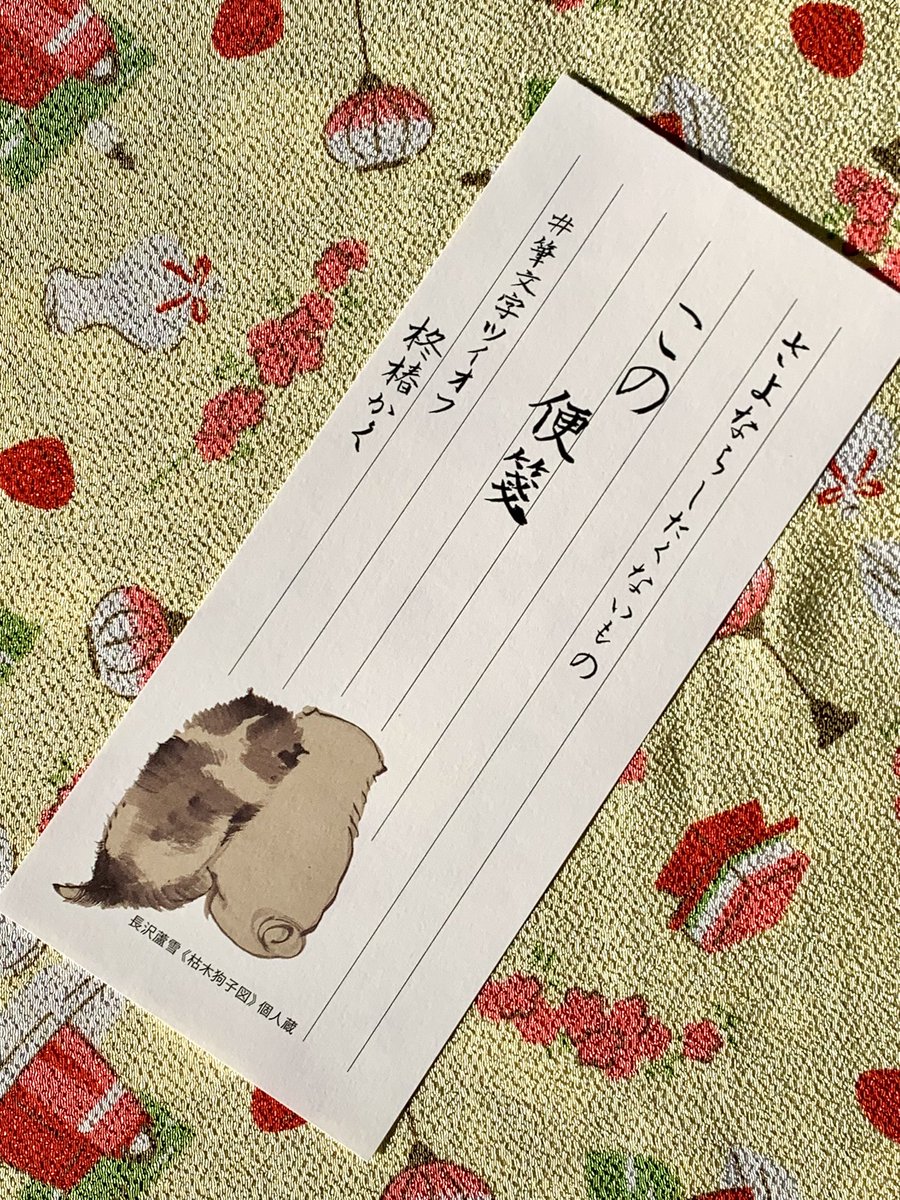 さよならしたくないもの
この
便箋
#筆文字ツイオフ
柊椿かく
長沢蘆雪《枯木狗子図》個人蔵